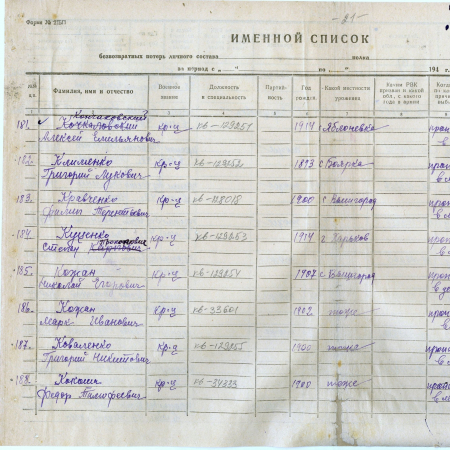 Форма № 2/БП
— 21 —
ИМЕННОЙ СПИСОК
безвозвратных потерь личного состава полка
за период с „ “ по „ “ 194 г.
Фамилия, имя и отчество
Воинское звание
Должность и специальность
Партий-ность
Год рожден.
Какой местности уроженец
Каким РВК призван и какой обл., с какого года в армии
181. Алексей Емельянович кр-ц кв-129251 1914 с Яблоневка
182. Клименко
Григорий Лукович кр-ц кв-129252 1893 с Боярка
183. Кравченко
Филипп Терентьевич кр-ц кв-128018 1900 с Вышгород
184. Куценко
Степан Прокопович кр-ц кв-129253 1914 г Харьков
185. Кожан
Николай Егорович кр-ц кв-129254 1907 с Вышгород
186. Кожан
Марк Иванович кр-ц кв-33601 1902 тоже
187. Коваленко
Григорий Никитович кр-ц кв-129255 1900 тоже
188. Кокоша
Федор Тимофеевич кр-ц кв-34333 1908 тоже